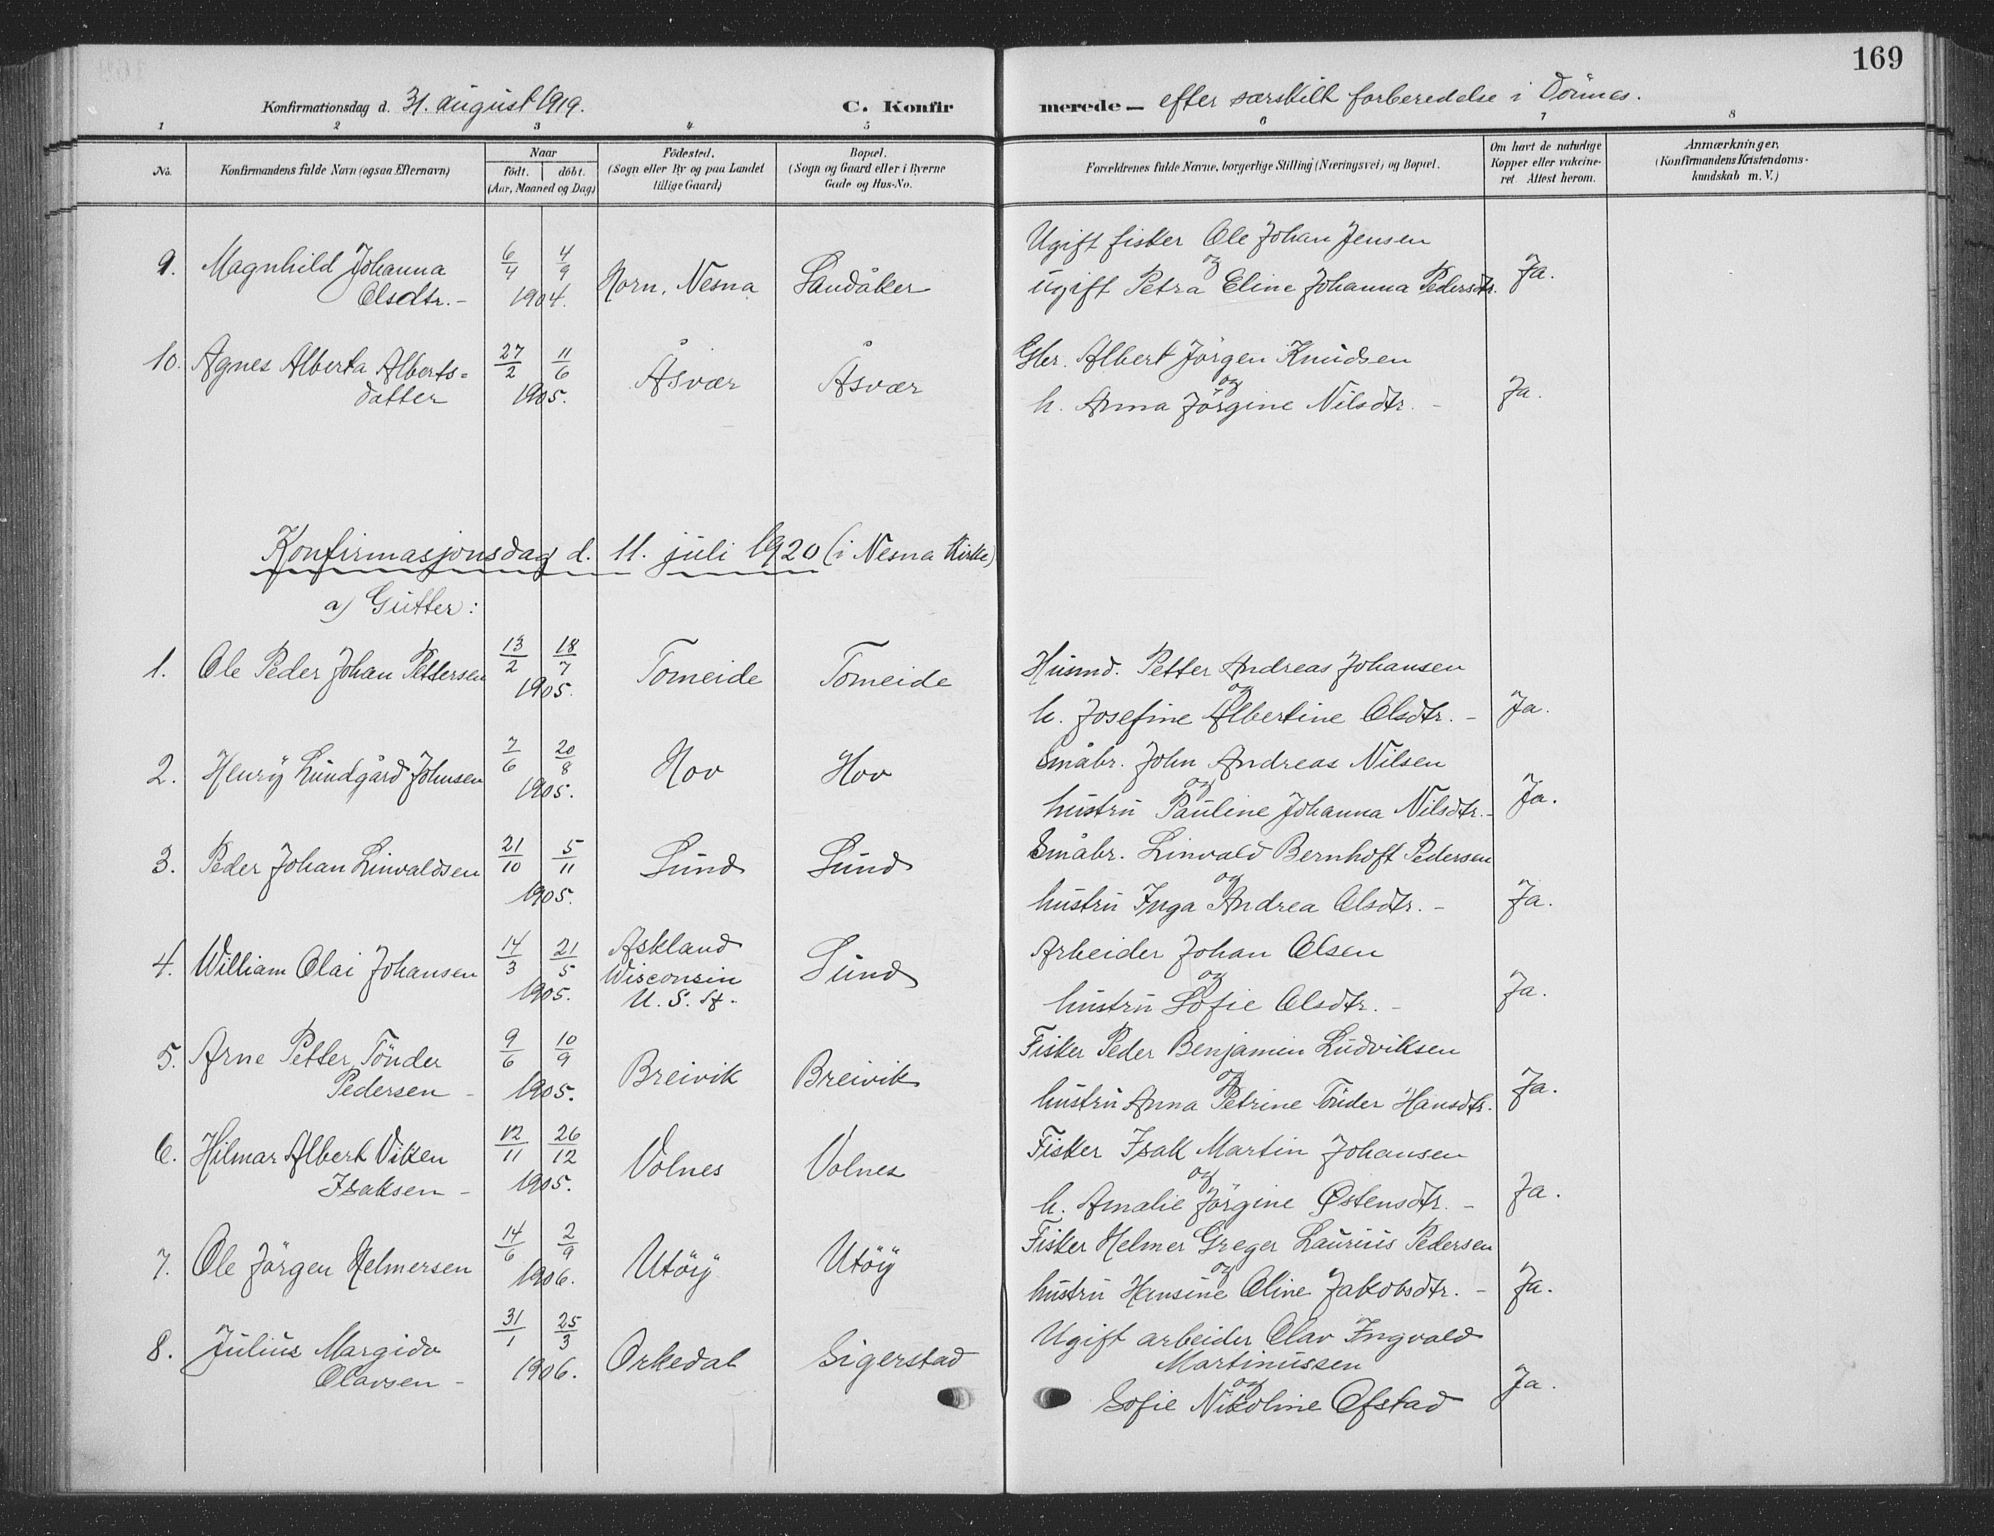 169
Konfirmationsdag d. 31. august 1919. C. Konfirmerede — efter særskilt forberedelse i Dönnes.
1 2 3 4 5 6 7 8
No. Konfirmandens fulde Navn (ogsaa Efternavn) Naar födt. döbt. (Aar, Maaned og Dag) Födested. (Sogn eller By og paa Landet tillige Gaard) Bopæl. (Sogn og Gaard eller i Byerne Gade og Hus-No. Forældrenes fulde Navne, borgerlige Stilling (Næringsvei) og Bopæl. Om havt de naturlige Kopper eller vakcineret. Attest herom. Anmærkninger. (Konfirmandens Kristendomskundskab m. V.)
9. Magnhild Johanna Olsdtr. - 6/4 4/9 1904. Horn, Nesna Sandåker Ugift fisker Ole Johan Jensen og ugift Petra Eline Johanna Pedersdtr. Ja.
10. Agnes Alberta Albertsdatter 27/2 11/6 1905. Åsvær Åsvær Gbr. Albert Jörgen Knudsen og h. Anna Jörgine Nilsdtr. - Ja.
Konfirmasjonsdag d. 11. juli 1920 (i Nesna Kirke)
a) Gutter:
1. Ole Peder Johan Pettersen 13/2 18/7 1905. Tomeide Tomeide Husmd. Petter Andreas Johansen og h. Josefine Albertine Olsdtr. - Ja.
2. Henry Lundgård Johnsen 7/6 20/8 1905. Hov Hov Småbr. John Andreas Nilsen og hustru Pauline Johanna Nilsdtr. - Ja.
3. Peder Johan Linvaldsen 21/10 5/11 1905. Sund Sund Småbr. Linvald Bernhoft Pedersen og hustru Inga Andrea Olsdtr. - Ja.
4. William Olai Johansen 14/3 21/5 1905. Askland Wisconsin U. S. A. Sund Arbeider Johan Olsen og hustru Sofie Olsdtr. - Ja.
5. Arne Petter Tönder Pedersen - 9/6 10/9 1905. Breivik Breivik Fisker Peder Benjamin Ludviksen og hustru Anna Petrine Tönder Hansdtr. Ja.
6. Hilmar Albert Viken Isaksen - 12/11 26/12 1905. Volnes Volnes Fisker Isak Martin Johansen og h. Amalie Jörgine Østensdtr. - Ja.
7. Ole Jörgen Helmersen 14/6 2/9 1906. Utöy Utöy Fisker Helmer Greger Laurius Pedersen og hustru Hansine Oline Jakobsdtr. - Ja.
8. Julius Margido Olavsen - 31/1 25/3 1906. Orkedal Sigerstad Ugift arbeider Olav Ingvald Martinussen og Sofie Nikoline Ofstad Ja.